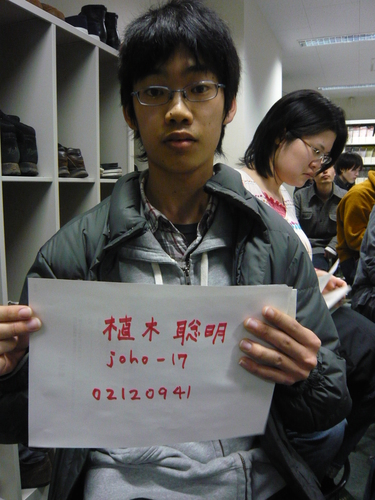 植木 聡明
joho-17
02120941